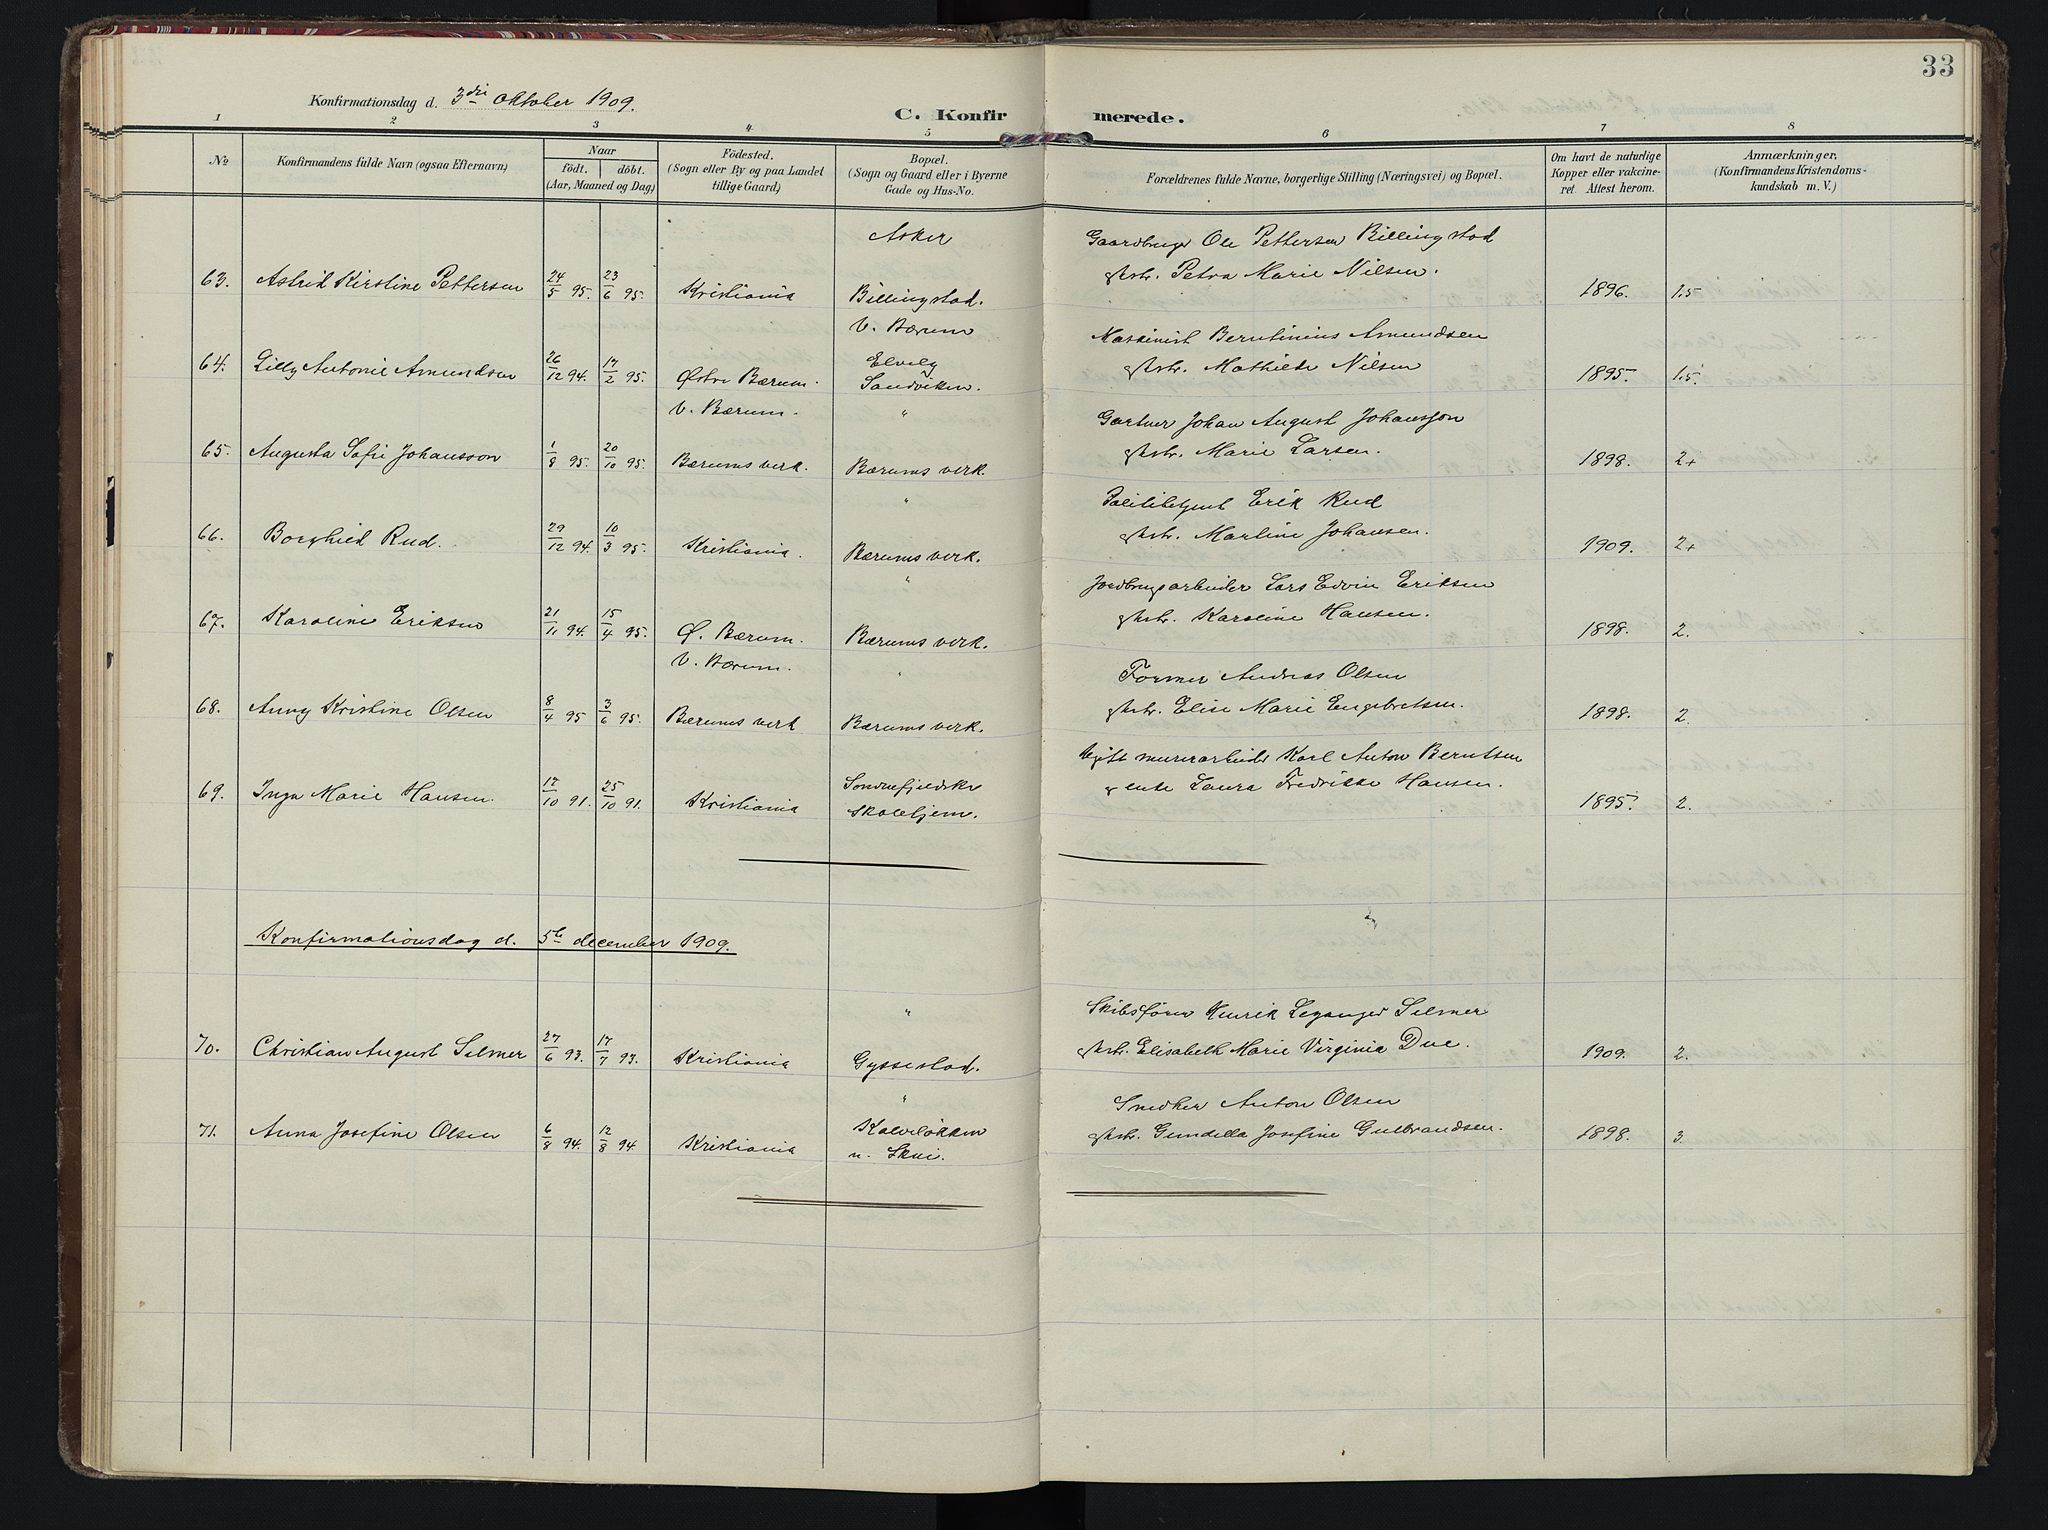 33
Konfirmationsdag d. 3die oktober 1909.
C. Konfirmerede.
1 2 3 4 5 6 7 8
No
Konfirmandens fulde Navn (ogsaa Efternavn)
Naar
födt. döbt.
(Aar, Maaned og Dag)
Födested.
(Sogn eller By og paa Landet
tillige Gaard)
Bopæl.
(Sogn og Gaard eller i Byerne
Gade og Hus-No.
Forældrenes fulde Navne, borgerlige Stilling (Næringsvei) og Bopæl.
Om havt de naturlige
Kopper eller vakcine-
ret. Attest herom.
Anmærkninger.
(Konfirmandens Kristendoms-
kundskab m. V.)
Asker Gaardbruger Ole Pettersen Billingstad
63. Astrid Kirstine Pettersen 24/5 95. 23/6 95. Kristiania Billingstad. Petra Marie Nilsen. 1896. 1.5
V. Bærum Maskinist Berntinius Amundsen
64. Lilly Antonie Amundsen 26/12 94. 17/2 95. Østre Bærum. Elvely Sandviken. Mathilde Nilsen 1895. 1.5.
V. Bærum. " Gartner Johan August Johansson
65. Augusta Sofie Johansson 1/8 95. 20/10 95. Bærums verk. Bærums verk. Marie Larsen. 1898. 2+
" Politibetjent Erik Rud
66. Borghild Rud. 29/12 94. 10/3 95. Kristiania. Bærums verk. Martine Johansen. 1909. 2+
" Jordbrugsarbeider Lars Edvin Eriksen
67. Karoline Eriksen 21/11 94. 15/4 95. Ø. Bærum. Bærums verk. Karoline Hansen. 1898. 2.
V. Bærum. " Former Andreas Olsen
68. Anny Kristine Olsen 8/4 95 3/6 95. Bærums verk Bærums verk. Elise Marie Engebretsen. 1898. 2.
Ugift murerarbeider Karl Anton Berntsen
69. Inga Marie Hansen. 17/10 91. 25/10 91. Kristiania Søndenfjeldske Skolehjem. enke Laura Fredrikke Hansen. 1895. 2.
Konfirmationsdag d. 5te december 1909.
" Skibsfører Henrik Leganger Selmer
70. Christian August Selmer 27/6 93. 17/7 93. Kristiania Gyssestad. Elisabeth Marie Virginia Due. 1909. 2.
" Snedker Anton Olsen
71. Anna Josefine Olsen 6/8 94. 12/8 94. Kristiania Kalveløkken Gundella Josefine Gulbrandsen. 1898. 3.
n. Skui.